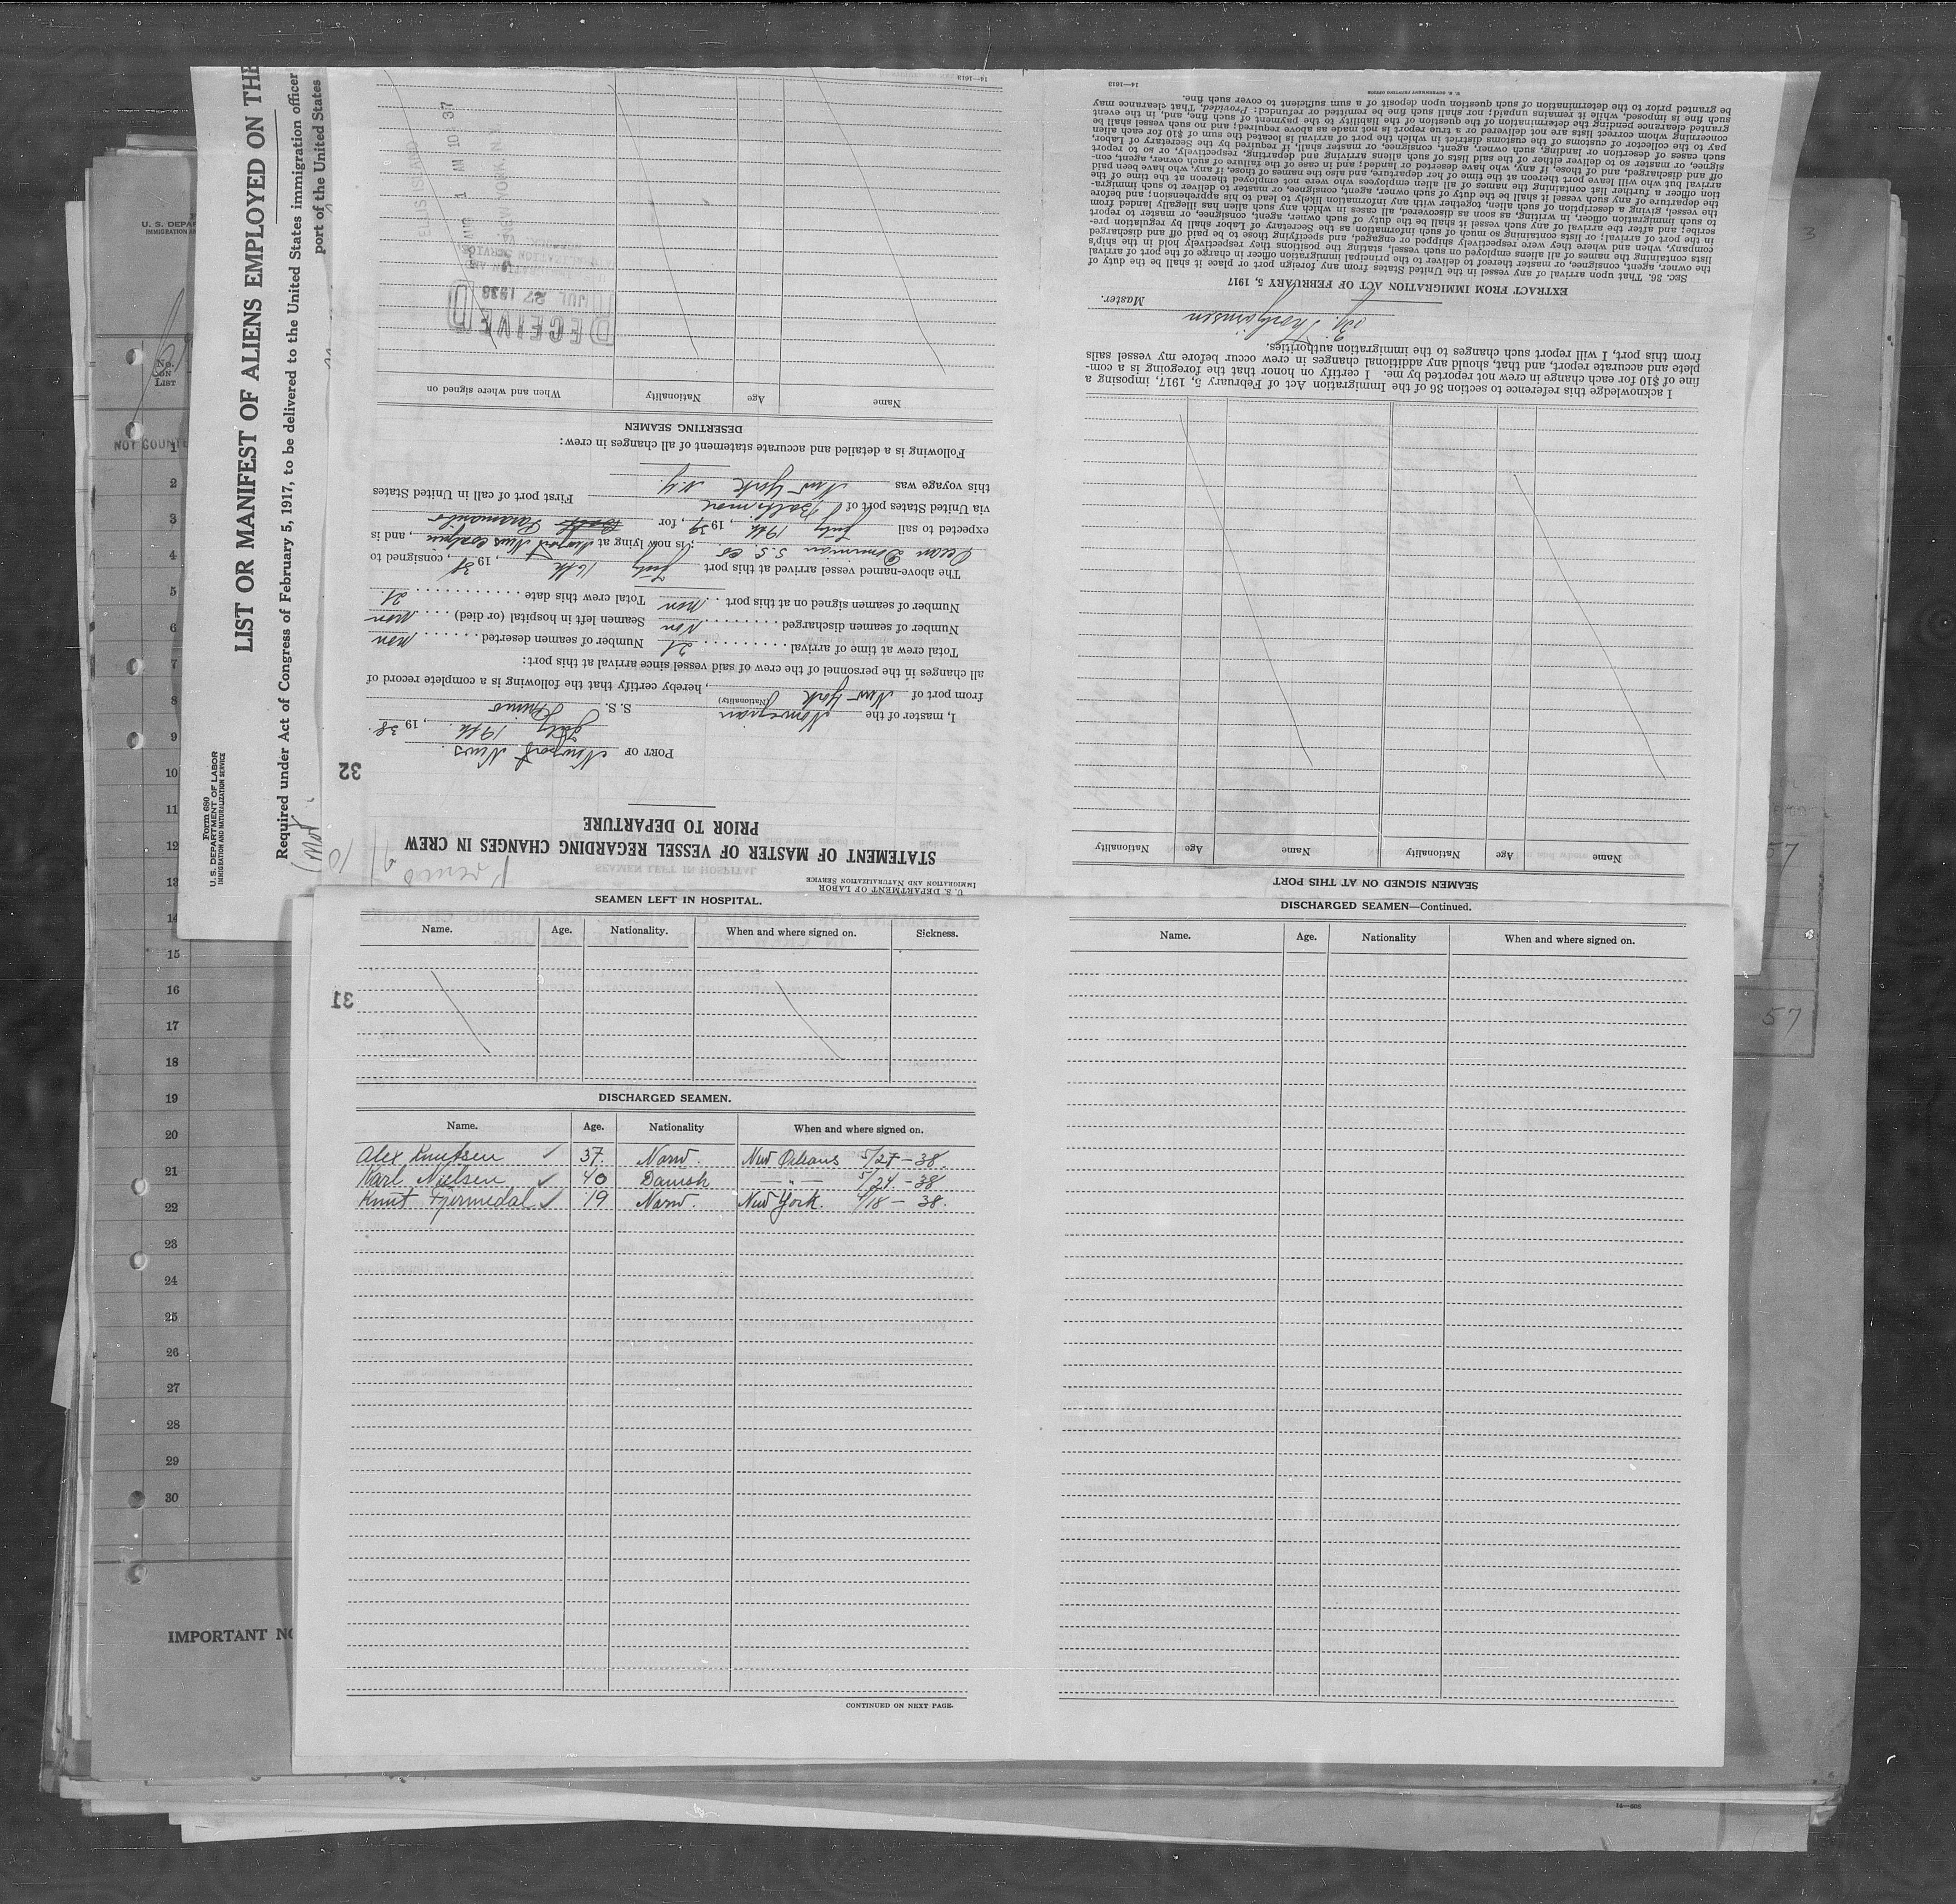 Form 680
U. S. DEPARTMENT OF LABOR
IMMIGRATION AND NATURALIZATION SERVICE
LIST OR MANIFEST OF ALIENS EMPLOYED ON THE
Required under Act of Congress of February 5, 1917, to be delivered to the United States immigration officer
port of the United States
No.
ON
LIST
1
2
3
4
5
6
7
8
9
10
11
12
13
14
15
16
17
18
19
20
21
22
23
24
25
26
27
28
29
30
IMPORTANT
57
57
3
U. S. DEPARTMENT OF LABOR
IMMIGRATION AND NATURALIZATION SERVICE
STATEMENT OF MASTER OF VESSEL REGARDING CHANGES IN CREW
PRIOR TO DEPARTURE
32
PORT OF Newport News
July 19th, 1938.
I, master of the Norwegian S. S. Primo
(Nationality)
from port of New York, hereby certify that the following is a complete record of
all changes in the personnel of the crew of said vessel since arrival at this port:
Total crew at time of arrival 21 Number of seamen deserted non
Number of seamen discharged Non Seamen left in hospital (or died) non
Number of seamen signed on at this port non Total crew this date 21
The above-named vessel arrived at this port July 16th, 1938, consigned to
Ocean Dominion S.S. Co, is now lying at Newport News, and is
expected to sail July 19th, 1938, for Paramaribo
via United States port of Baltimore First port of call in United States
this voyage was New York N.Y.
Following is a detailed and accurate statement of all changes in crew:
DESERTING SEAMEN
Name Age Nationality When and where signed on
RECEIVED
JUL 27 1938
AUG 1 AM 10 37
ELLIS ISLAND
NEW YORK, N.Y.
14—1613
SEAMEN SIGNED ON AT THIS PORT
Name Age Nationality Name Age Nationality
I acknowledge this reference to section 36 of the Immigration Act of February 5, 1917, imposing a
fine of $10 for each change in crew not reported by me. I certify on honor that the foregoing is a com-
plete and accurate report, and that, should any additional changes in crew occur before my vessel sails
from this port, I will report such changes to the immigration authorities.
Master.
EXTRACT FROM IMMIGRATION ACT OF FEBRUARY 5, 1917
SEC. 36. That upon arrival of any vessel in the United States from any foreign port or place it shall be the duty of
the owner, agent, consignee, or master thereof to deliver to the principal immigration officer in charge of the port of arrival
lists containing the names of all aliens employed on such vessel, stating the positions they respectively hold in the ship's
company, when and where they were respectively shipped or engaged, and specifying those to be paid off and discharged
in the port of arrival; or lists containing so much of such information as the Secretary of Labor shall by regulation pre-
scribe; and after the arrival of any such vessel it shall be the duty of such owner, agent, consignee, or master to report
to such immigration officer, in writing, as soon as discovered, all cases in which any such alien has illegally landed from
the vessel, giving a description of such alien, together with any information likely to lead to his apprehension; and before
the departure of any such vessel it shall be the duty of such owner, agent, consignee, or master to deliver to such immigra-
tion officer a further list containing the names of all alien employees who were not employed thereon at the time of the
arrival but who will leave port thereon at the time of her departure, and also the names of those, if any, who have been paid
off and discharged, and of those, if any, who have deserted or landed; and in case of the failure of such owner, agent, con-
signee, or master so to deliver either of the said lists of such aliens arriving and departing, respectively, or so to report
such cases of desertion or landing, such owner, agent, consignee, or master shall, if required by the Secretary of Labor,
pay to the collector of customs of the customs district in which the port of arrival is located the sum of $10 for each alien
concerning whom correct lists are not delivered or a true report is not made as above required; and no such vessel shall be
granted clearance pending the determination of the question of the liability to the payment of such fine, and, in the event
such fine is imposed, while it remains unpaid; nor shall such fine be remitted or refunded: Provided, That clearance may
be granted prior to the determination of such question upon deposit of a sum sufficient to cover such fine.
U. S. GOVERNMENT PRINTING OFFICE 14—1613
31
SEAMEN LEFT IN HOSPITAL.
Name. Age. Nationality. When and where signed on. Sickness.
DISCHARGED SEAMEN.
Name. Age. Nationality When and where signed on.
Alex Knutsen 37. Norw. New Orleans 5/27-38.
Karl Nielsen 40 Danish — " — 5/24.-38
Knut Fjermedal 19 Norw. New York. 4/18 - 38.
CONTINUED ON NEXT PAGE.
DISCHARGED SEAMEN—Continued.
Name. Age. Nationality When and where signed on.